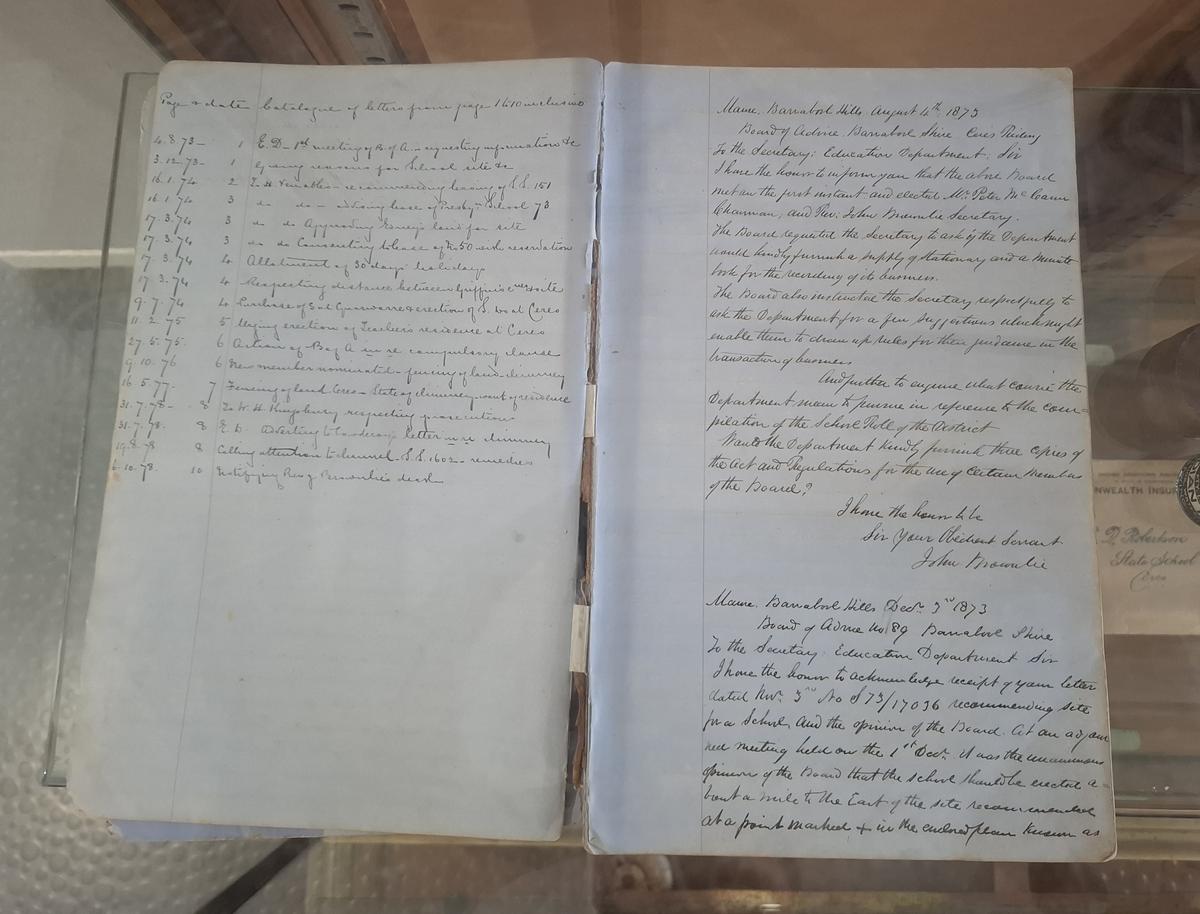 Page & date Catalogue of letters from page 1 to 10 inclusive
4.8.73 - 1 E.D. - 1st meeting of B. of A. - requesting information &c
3.12.73 - 1 Giving reasons for School site &c
16.1.74 2 recommending leasing of S.S. 151
16.1.74 3 do do - advising lease of Presbyn School 73
17.3.74 3 do do Approving land for site
17.3.74 3 do do Consenting to lease of with reservation
17.3.74 4 Allotment of 30 days holidays
17.3.74 4 Respecting distance between site
9.7.74 4 Purchase of Gnarwarre & erection of S. at Ceres
11.2.75 5 Urging erection of Teacher's residence at Ceres
27.5.75. 6 Action of B of A in re compulsory clause
9.10.76 6 New member nominated - fencing of land chimney
16.5.77. 7 Fencing of land Ceres - State of chimney, want of residence
31.7.78 - 8 To W. H. Kingsbury respecting prosecution
31.7.78. 8 E.D. Adverting to letter in re chimney
19.8.78 8 Calling attention to channel S.S. 1602 - remedies
6.10.78. 10 Notifying Rev J. Brownlie's death
Mawe, Barrabool Hills August 4th, 1873
Board of Advice, Barrabool Shire Ceres Riding
To the Secretary; Education Department; Sir
I have the honor to inform you that the above Board
met on the first instant and elected Mr Peter McCann
Chairman, and Rev. John Brownlie Secretary.
The Board requested the Secretary to ask if the Department
would kindly furnish a supply of stationary and a minute
book for the recording of its business.
The Board also instructed the Secretary respectfully to
ask the Department for a few suggestions which might
enable them to draw up rules for their guidance in the
transaction of business
And further to enquire what course the
Department mean to pursue in reference to the com-
pilation of the School Roll of the District
Would the Department kindly furnish three copies of
the Act and Regulations for the use of certain members
of the Board?
I have the honor to be
Sir Your Obedient Servant
John Brownlie
Mawe, Barrabool Hills Decr. 3rd 1873
Board of Advice No 89 Barrabool Shire
To the Secretary Education Department Sir
I have the honor to acknowledge receipt of your letter
dated Novr. 3rd No S 73/17036 recommending site
for a School, And the opinion of the Board. At an adjour
ned meeting held on the 1st Decr. it was the unanimous
opinion of the Board that the school should be erected a-
bout a mile to the East of the site recommended
at a point marked + in the enclosed plan known as
NWEALTH INSUR
D. Robertson
State School
Ceres